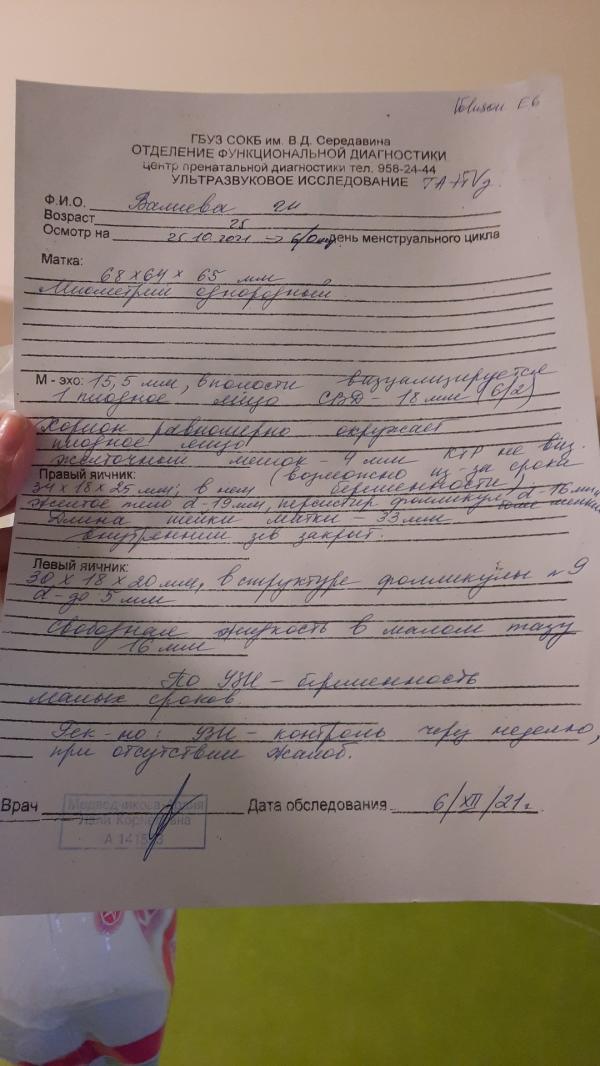 Voluson E6
ГБУЗ СОКБ им. В.Д. Середавина
ОТДЕЛЕНИЕ ФУНКЦИОНАЛЬНОЙ ДИАГНОСТИКИ
центр пренатальной диагностики тел. 958-24-44
УЛЬТРАЗВУКОВОЕ ИССЛЕДОВАНИЕ TA+TV
Ф.И.О. Валиева
Возраст 25
Осмотр на 25.10.2021 → 6/0 день менструального цикла
Матка:
68 х 64 х 65 мм
Миометрий однородный.
М - эхо: 15,5 мм, в полости визуализируется
1 плодное яйцо СВД - 18 мм (6/2)
Хорион равномерно окружает
плодное яйцо
желточный мешок - 4 мм КТР не виз.
(возможно из-за срока
Правый яичник: беременности)
34 х 18 х 25 мм; в нем
желтое тело d-19 мм, персистир. фолликул d-16 мм
Длина шейки матки - 33 мм
внутренний зев закрыт.
Левый яичник:
30 х 18 х 20 мм, в структуре фолликулы n 9
d - до 5 мм
Свободная жидкость в малом тазу
16 мм
По УЗИ - беременность
малых сроков.
Рек-но: УЗИ - контроль через неделю,
при отсутствии жалоб.
Врач Дата обследования 6/XII/21г.
А 141